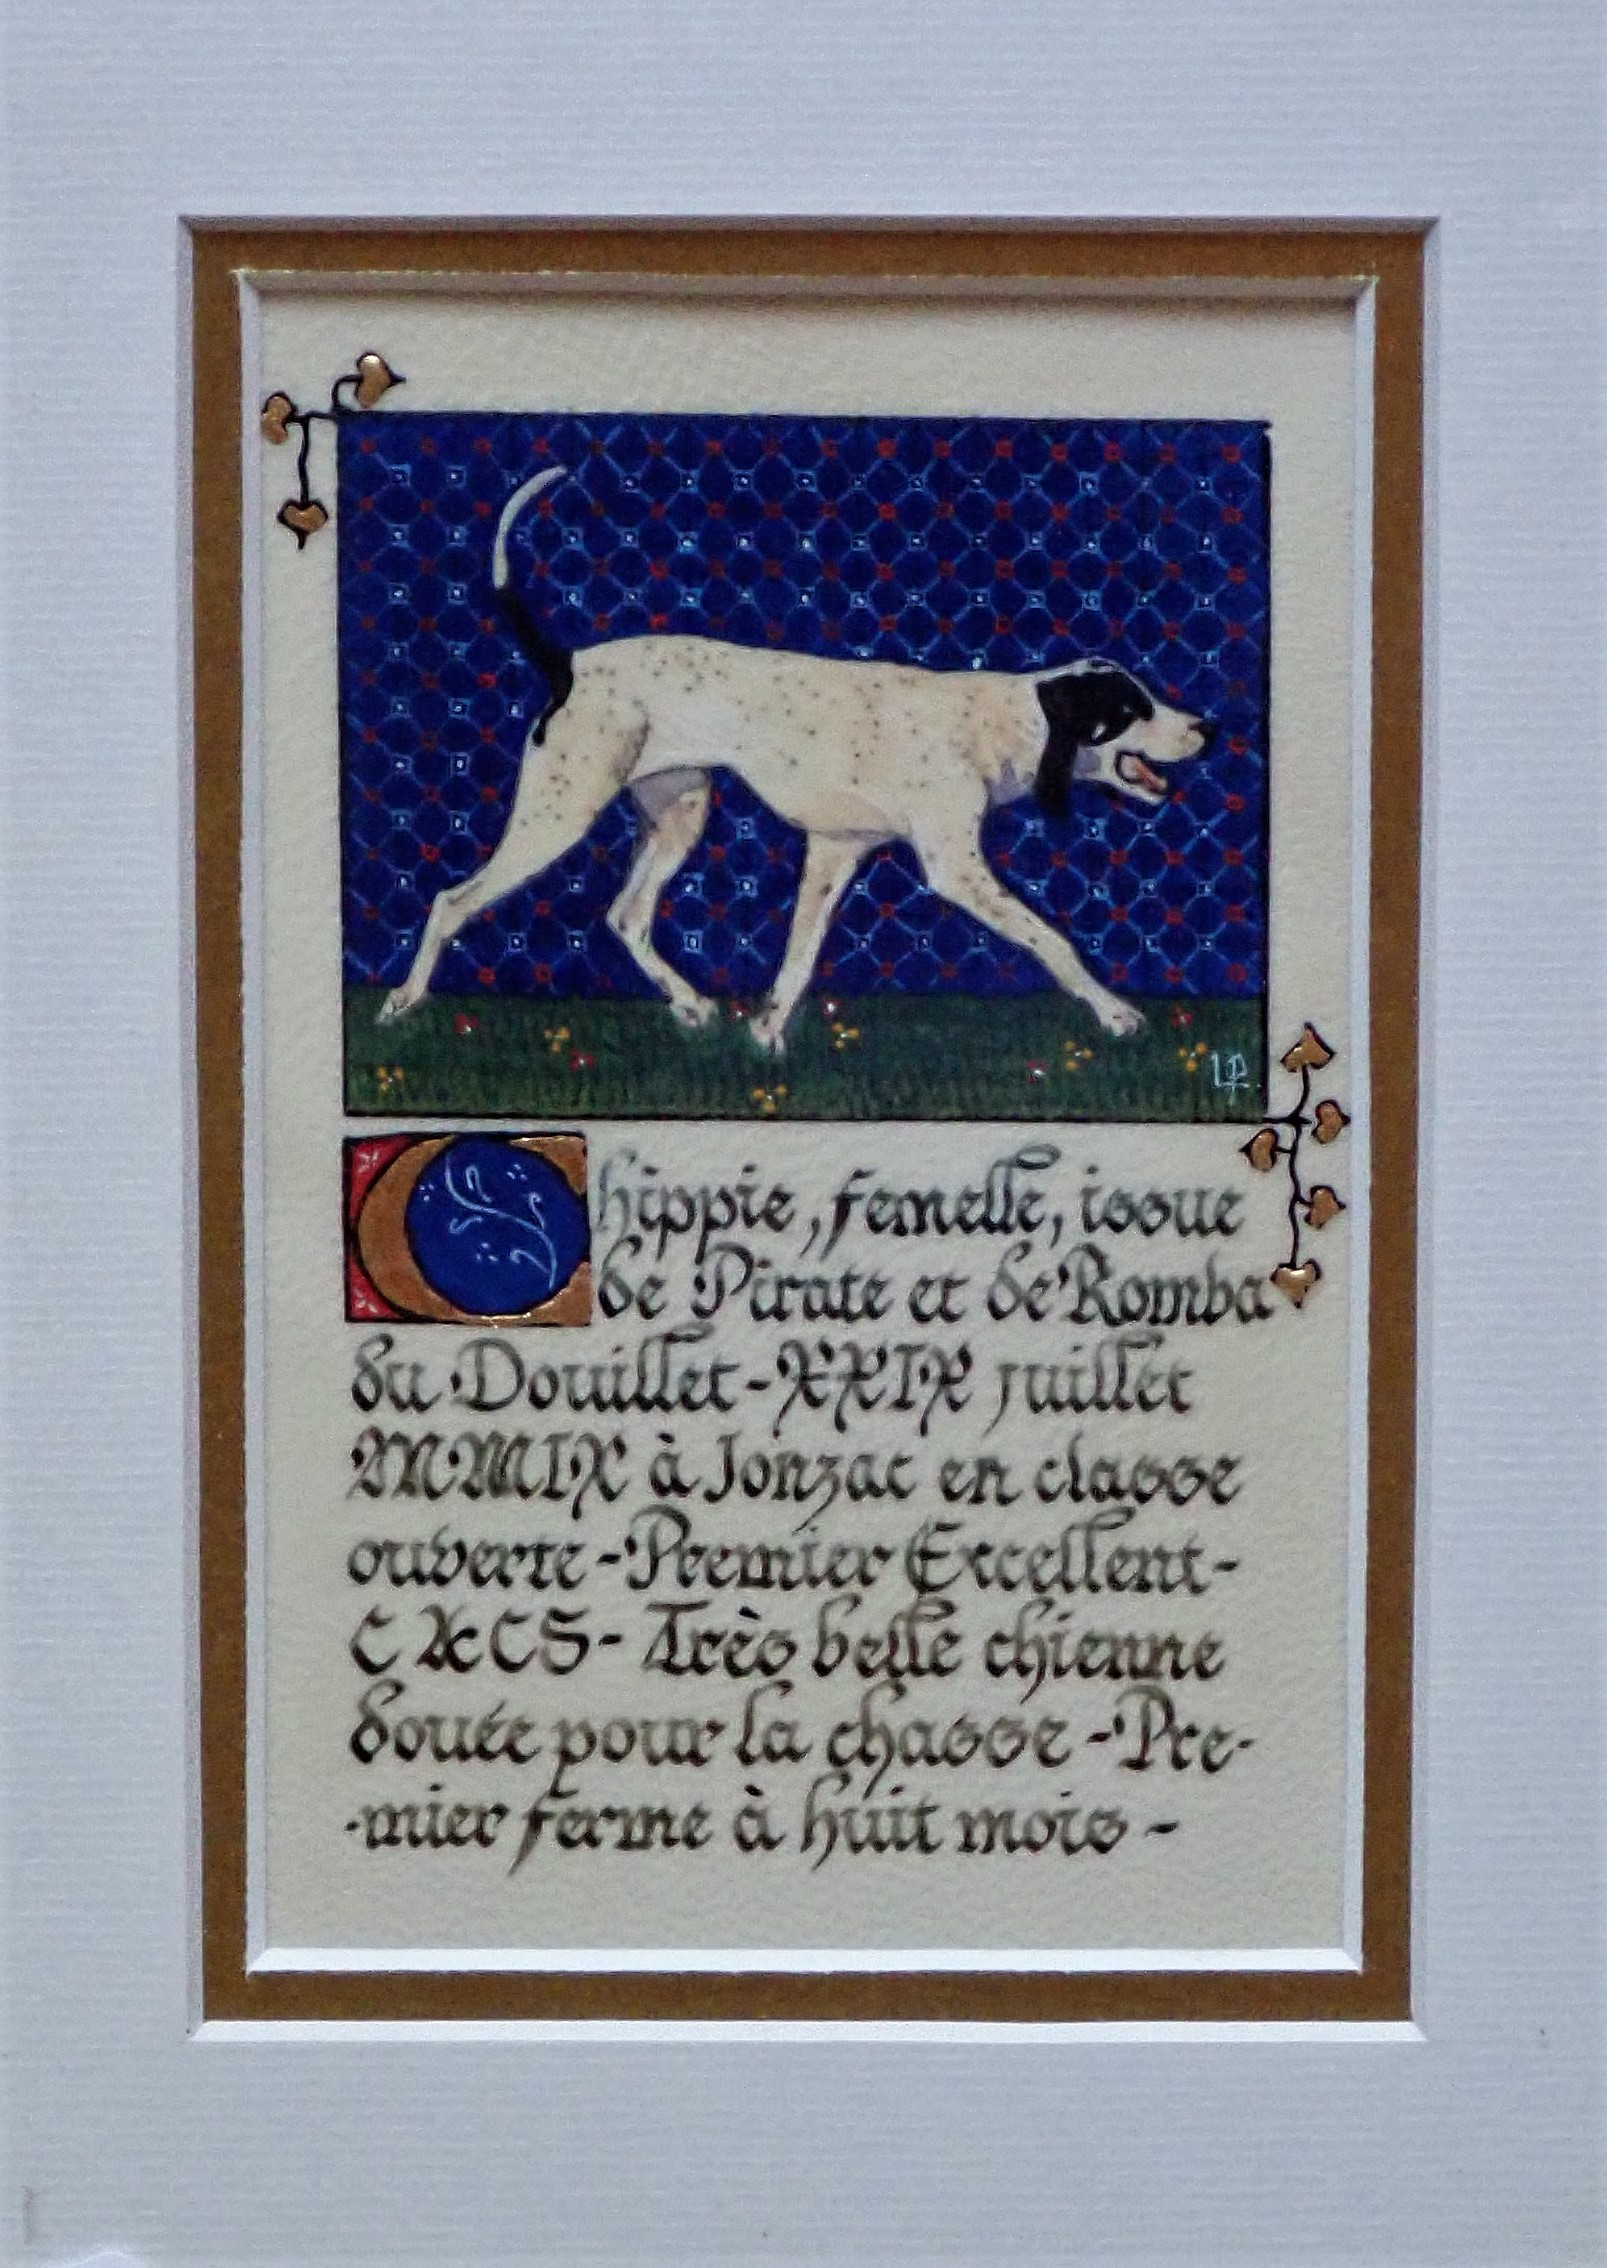 LP
Chippie, femelle, issue
de Pirate et de Romba
du Douillet - XXIX juillet
MMIX à Jonzac en classe
ouverte - Premier Excellent -
CACS - Très belle chienne
douée pour la chasse - Pre-
-mier ferme à huit mois -